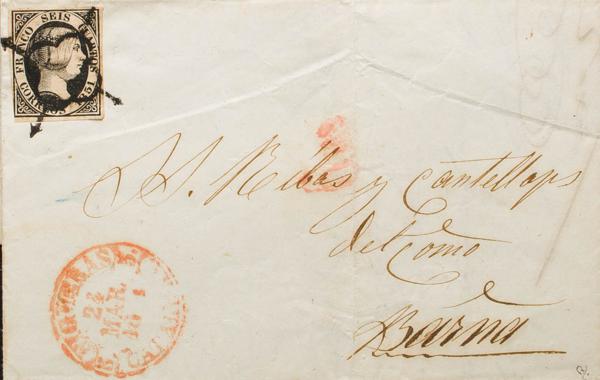 FRANCO SEIS CUARTOS
CORREOS 1851
S.S. Ribas y Cantellops
del Comº
Barna
24
MAR.